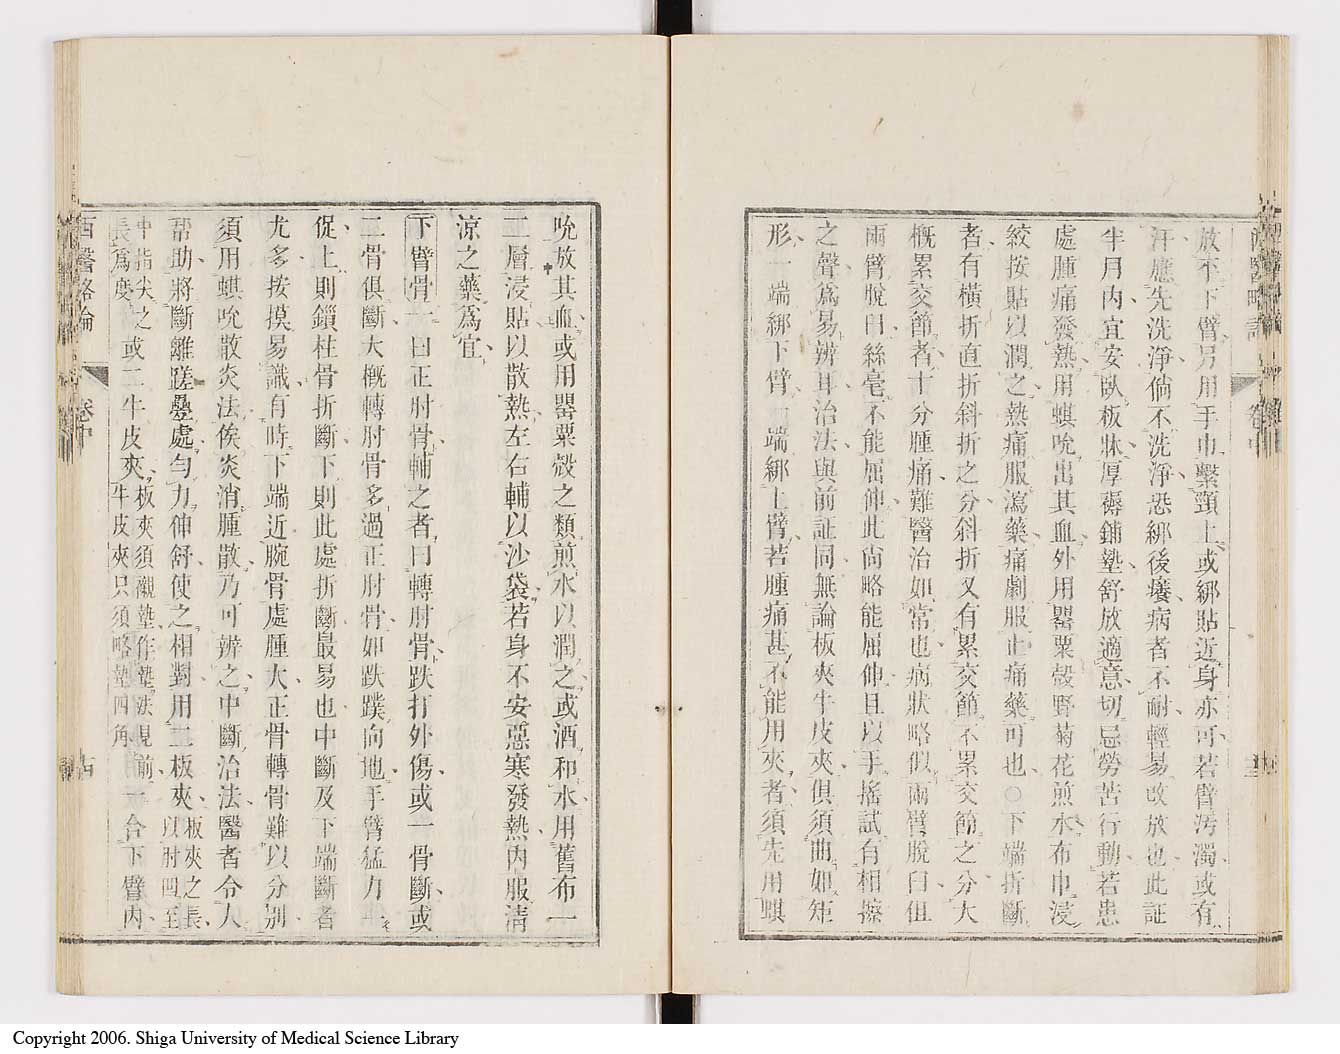 西醫略論
卷中
放不下臂另用手巾繫頸上或綁貼近身亦可若臂污濁或有
汗應先洗淨倘不洗淨恐綁後癢病者不耐輕易改放也此証
半月內宜安臥板牀厚蓐鋪墊舒放適意切忌勞苦行動若患
處腫痛發熱用蜞吮出其血外用罌粟殼野菊花煎水布巾浸
絞按貼以潤之熱痛服瀉藥痛劇服止痛藥可也○下端折斷
者有橫折直折斜折之分斜折又有累交節不累交節之分大
概累交節者十分腫痛難醫治如常也病狀略似兩臂脫臼但
兩臂脫臼絲毫不能屈伸此尚略能屈伸且以手搖試有相擦
之聲爲易辨耳治法與前証同無論板夾牛皮夾俱須曲如矩
形一端綁下臂一端綁上臂若腫痛甚不能用夾者須先用蜞
吮放其血或用罌粟殼之類煎水以潤之或酒和水用舊布一
二層浸貼以散熱左右輔以沙袋若身不安惡寒發熱內服清
涼之藥爲宜
下臂骨一曰正肘骨輔之者曰轉肘骨跌打外傷或一骨斷或
二骨俱斷大概轉肘骨多過正肘骨如跌蹼向地手臂猛力
促上則鎖柱骨折斷下則此處折斷最易也中斷及下端斷者
尤多按摸易識有時下端近腕骨處腫大正骨轉骨難以分別
須用蜞吮散炎法俟炎消腫散乃可辨之中斷治法醫者令人
帮助將斷離蹉疊處勻力伸舒使之相對用二板夾板夾之長以肘凹至
中指尖之長爲度或二牛皮夾板夾須襯墊作墊法見前牛皮夾只須略墊四角一合下臂內
西醫略論
卷中
古